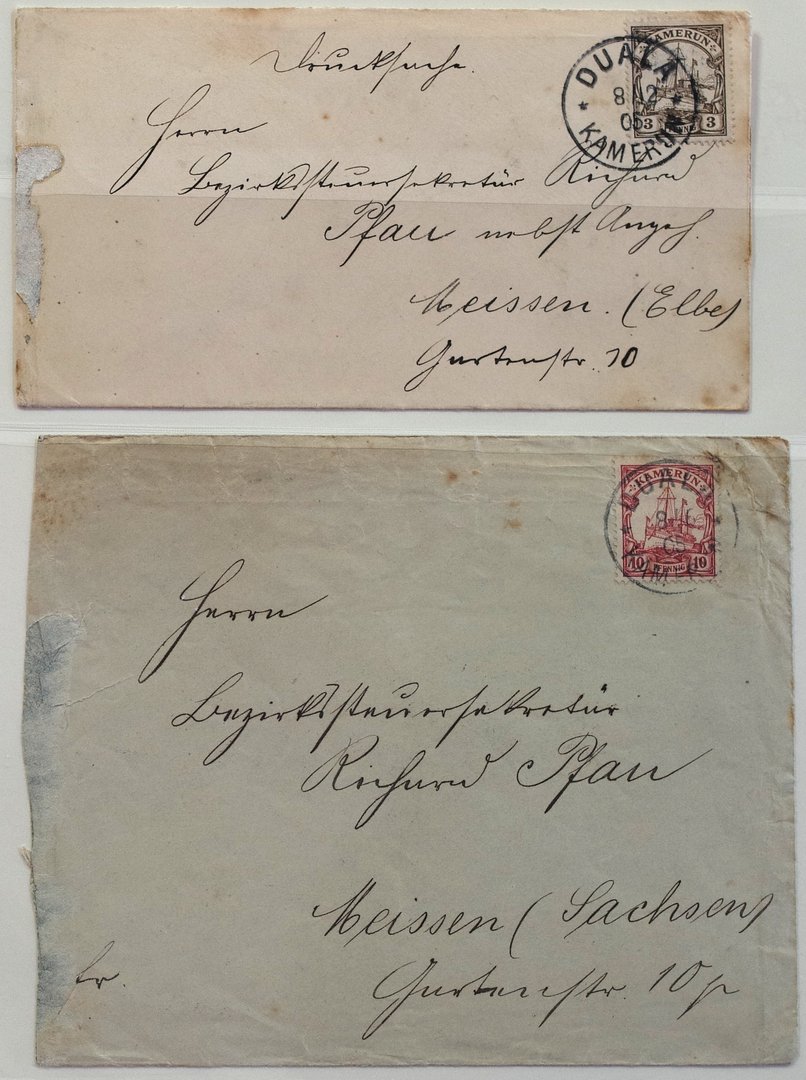 Drucksache.
KAMERUN
3 3
DUALA
8 12
05
KAMERUN
Herrn
Bezirkssteuersekretär Richard
Pfau nebst Angeh.
Meissen. (Elbe)
Gartenstr. 10
KAMERUN
10 PFENNIG 10
DUALA
8
05
Herrn
Bezirkssteuersekretär
Richard Pfau
Meissen (Sachsen)
fr.
Gartenstr. 10